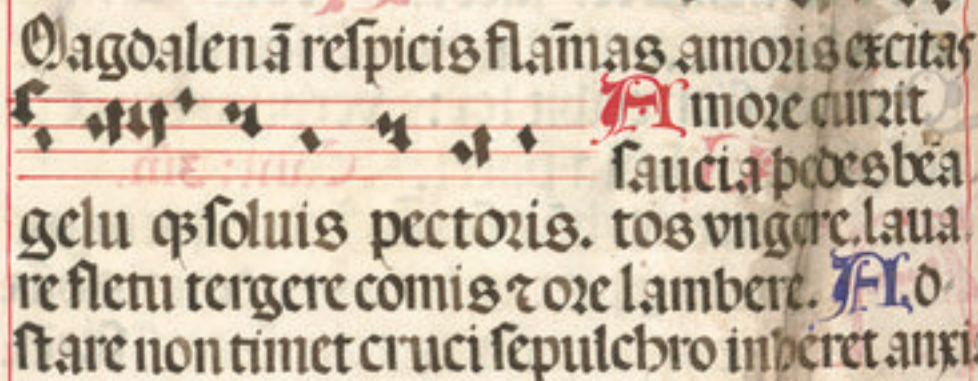 Magdalenā reſpicis flāmas amoris excitas
Amore currit
ſaucia pedes bea
gelu qꝫ ſoluis pectoris. tos vngere, laua
re fletu tergere comis ⁊ ore lambere. Ad
ſtare non timet cruci ſepulchro inheret anxi